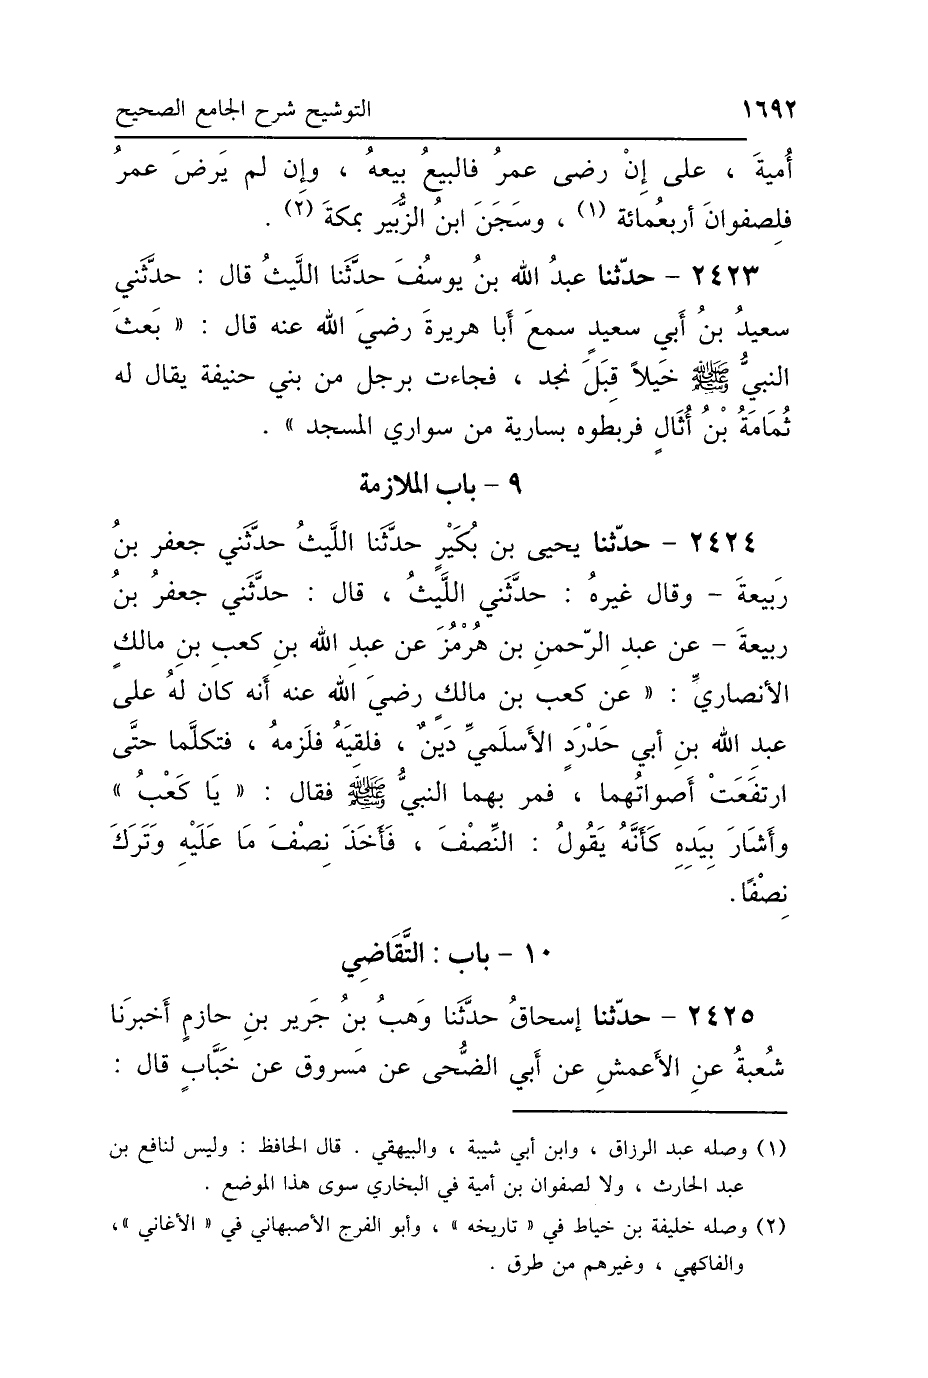 ١٦٩٢ التوشيح شرح الجامع الصحيح
أُميةَ ، على إِنْ رضى عمرُ فالبيعُ بيعهُ ، وإِن لم يَرضَ عمرُ
فلِصفوانَ أربعُمائة (١) ، وسجَنَ ابنُ الزُّبَير بمكةَ (٢) .
٢٤٢٣ – حدّثنا عبدُ الله بنُ يوسُفَ حدَّثَنا اللَّيثُ قال : حدَّثَني
سعيدُ بنُ أَبي سعيدٍ سمعَ أَبا هريرةَ رضيَ الله عنه قال : « بَعثَ
النبيُّ ﷺ خَيلاً قِبَلَ نجد ، فجاءت برجل من بني حنيفة يقال له
ثُمَامَةُ بْنُ أُثَالٍ فربطوه بسارية من سواري المسجد » .
٩ – باب الملازمة
٢٤٢٤ – حدّثنا يحيى بن بُكَيْرٍ حدَّثَنا اللَّيثُ حدَّثَني جعفر بنُ
رَبيعةَ – وقال غيرهُ : حدَّثَني اللَّيثُ ، قال : حدَّثَني جعفرُ بنُ
ربيعةَ – عن عبدِ الرّحمنِ بن هُرْمُزَ عن عبدِ الله بنِ كعبِ بنِ مالكٍ
الأنصاريِّ : « عن كعب بن مالكٍ رضيَ الله عنه أَنه كان لهُ على
عبدِ الله بنِ أبي حَدْرَدٍ الأَسلَميِّ دَينٌ ، فلقيَهُ فلَزِمهُ ، فتكلَّما حتَّى
ارتفَعَتْ أصواتُهما ، فمر بهما النبيُّ ﷺ فقال : « يَا كَعْبُ »
وأَشَارَ بِيَدِهِ كَأَنَّهُ يَقُولُ : النِّصْفَ ، فَأَخَذَ نِصْفَ مَا عَلَيْهِ وَتَرَكَ
نِصْفًا.
١٠ – باب : التَّقَاضِي
٢٤٢٥ – حدّثنا إسحاقُ حدَّثَنا وَهبُ بنُ جَرير بنِ حازمٍ أَخبرَنا
شُعبةُ عنِ الأَعمشِ عن أَبي الضُّحى عن مَسروق عن خَبَّابٍ قال :
(١) وصله عبد الرزاق ، وابن أبي شيبة ، والبيهقي . قال الحافظ : وليس لنافع بن
عبد الحارث ، ولا لصفوان بن أمية في البخاري سوى هذا الموضع .
(٢) وصله خليفة بن خياط في « تاريخه » ، وأبو الفرج الأصبهاني في « الأغاني »،
والفاكهي ، وغيرهم من طرق .